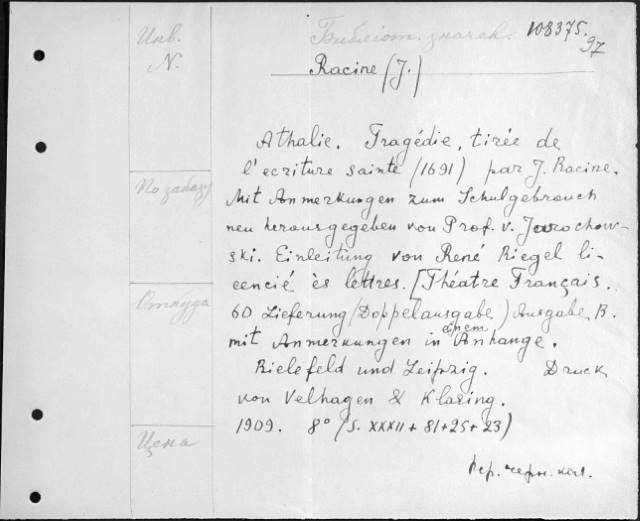 Инв.
N.
Библиот. значен. 108375.
37
Racine (J.)
Athalie. Tragédie, tirée de
l'ecriture sainte (1691) par J. Racine.
Mit Anmerkungen zum Schulgebrauch
neu herausgegeben von Prof. v. Jarochow-
ski. Einleitung von René Riegel li-
cencié ès lettres. [Théatre Français.
60 Lieferung (Doppelausgabe) Ausgabe B.
mit Anmerkungen in einem Anhange.
Bielefeld und Leipzig. Druck
von Velhagen & Klasing.
1909. 8° (S. XXXII + 81+25+23)
По заказу
Откуда
Цена
Пер. черн. кат.